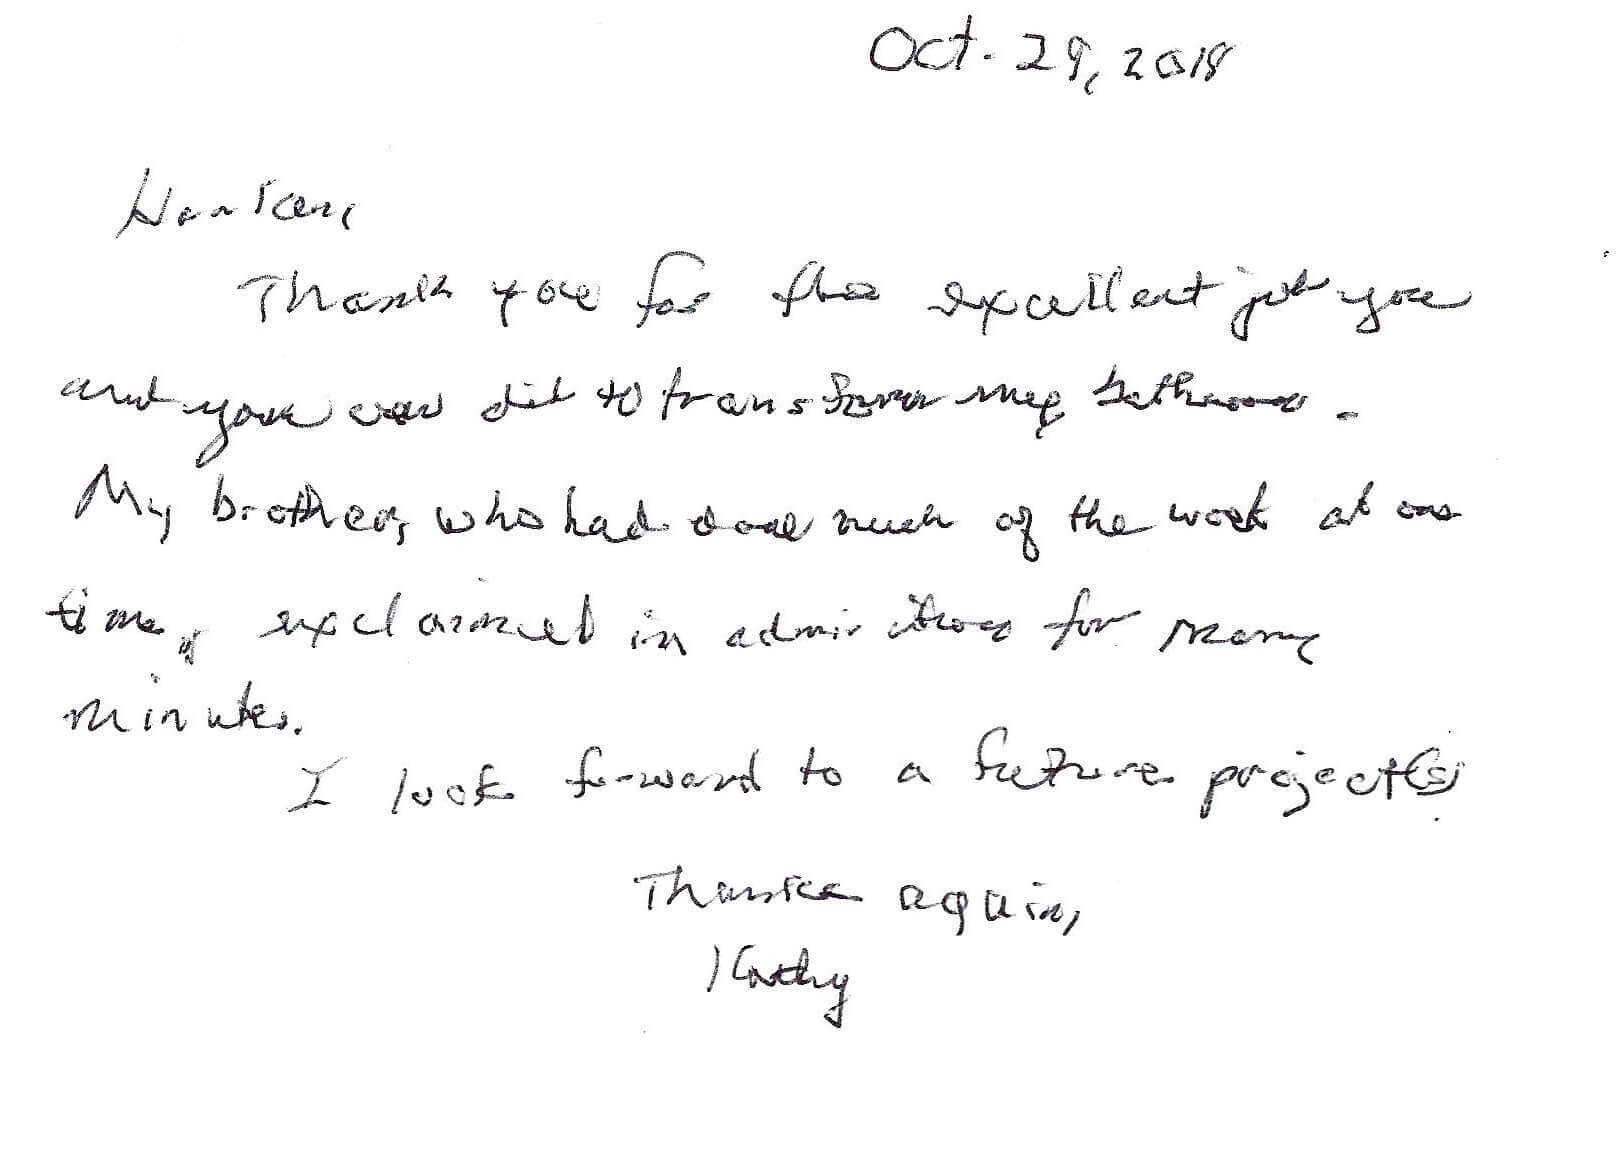 Oct. 29, 2018
Dear Ken,
Thank you for the excellent job you
and your crew did to transform my bathroom.
My brother, who had done much of the work at one
time, exclaimed in admiration for many
minutes.
I look forward to a future project(s).
Thanks again,
Kathy